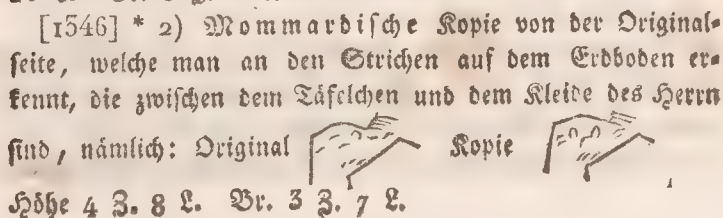 [1346] * 2) Mommardische Kopie von der Original-
seite, welche man an den Strichen auf dem Erdboden er-
kennt, die zwischen dem Täfelchen und dem Kleide des Herrn
sind, nämlich: Original Kopie
Höhe 4 Z. 8 L. Br. 3 Z. 7 L.